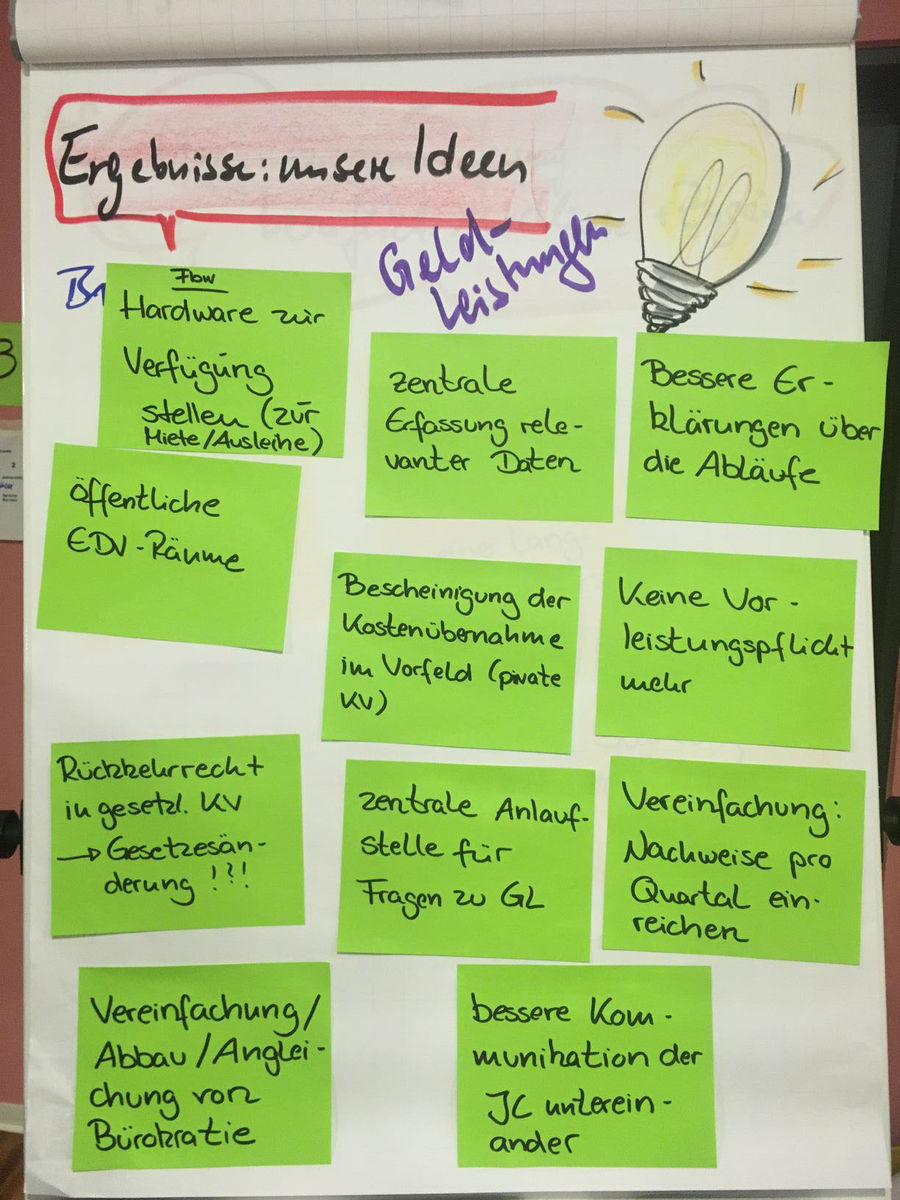 Ergebnisse: unsere Ideen
Geld-
Leistungen
Hardware zur
Verfügung
stellen (zur
Miete/Ausleihe)
zentrale
Erfassung rele-
vanter Daten
Bessere Er-
klärungen über
die Abläufe
öffentliche
EDV-Räume
Bescheinigung der
Kostenübernahme
im Vorfeld (private
KV)
Keine Vor-
leistungspflicht
mehr
Rückkehrrecht
in gesetzl. KV
→ Gesetzesän-
derung !?!
zentrale Anlauf-
stelle für
Fragen zu GL
Vereinfachung:
Nachweise pro
Quartal ein-
reichen
Vereinfachung/
Abbau/Anglei-
chung von
Bürokratie
bessere Kom-
munikation der
JC unterein-
ander